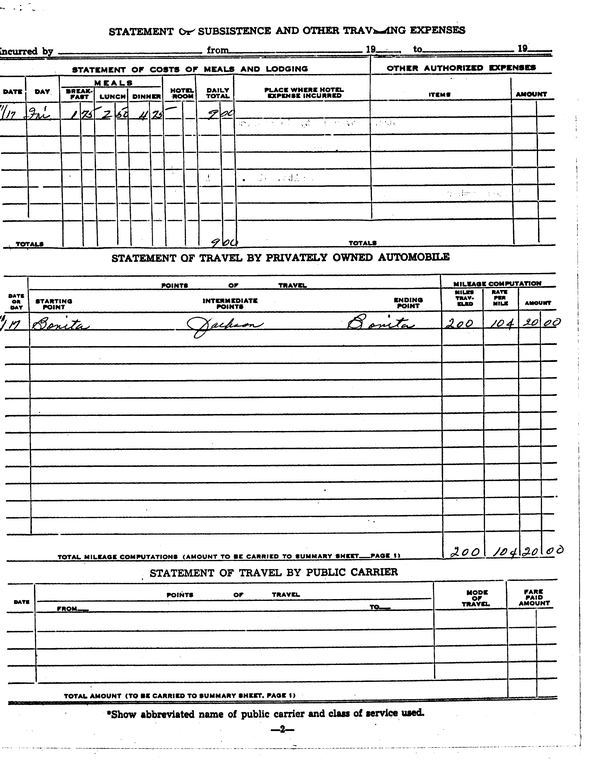 STATEMENT OF SUBSISTENCE AND OTHER TRAVELING EXPENSES
Incurred by from 19 to 19
STATEMENT OF COSTS OF MEALS AND LODGING OTHER AUTHORIZED EXPENSES
MEALS
DATE DAY BREAK-FAST LUNCH DINNER HOTEL ROOM DAILY TOTAL PLACE WHERE HOTEL EXPENSE INCURRED ITEMS AMOUNT
/17 Fri 1 75 2 50 4 75 — 9 00
TOTALS 9 00 TOTALS
STATEMENT OF TRAVEL BY PRIVATELY OWNED AUTOMOBILE
POINTS OF TRAVEL MILEAGE COMPUTATION
DATE OR DAY STARTING POINT INTERMEDIATE POINTS ENDING POINT MILES TRAV-ELED RATE PER MILE AMOUNT
/17 Bonita Jackson Bonita 200 10¢ 20 00
TOTAL MILEAGE COMPUTATIONS (AMOUNT TO BE CARRIED TO SUMMARY SHEET—PAGE 1) 200 10¢ 20 00
STATEMENT OF TRAVEL BY PUBLIC CARRIER
DATE POINTS OF TRAVEL MODE OF TRAVEL FARE PAID AMOUNT
FROM TO
TOTAL AMOUNT (TO BE CARRIED TO SUMMARY SHEET, PAGE 1)
*Show abbreviated name of public carrier and class of service used.
—2—